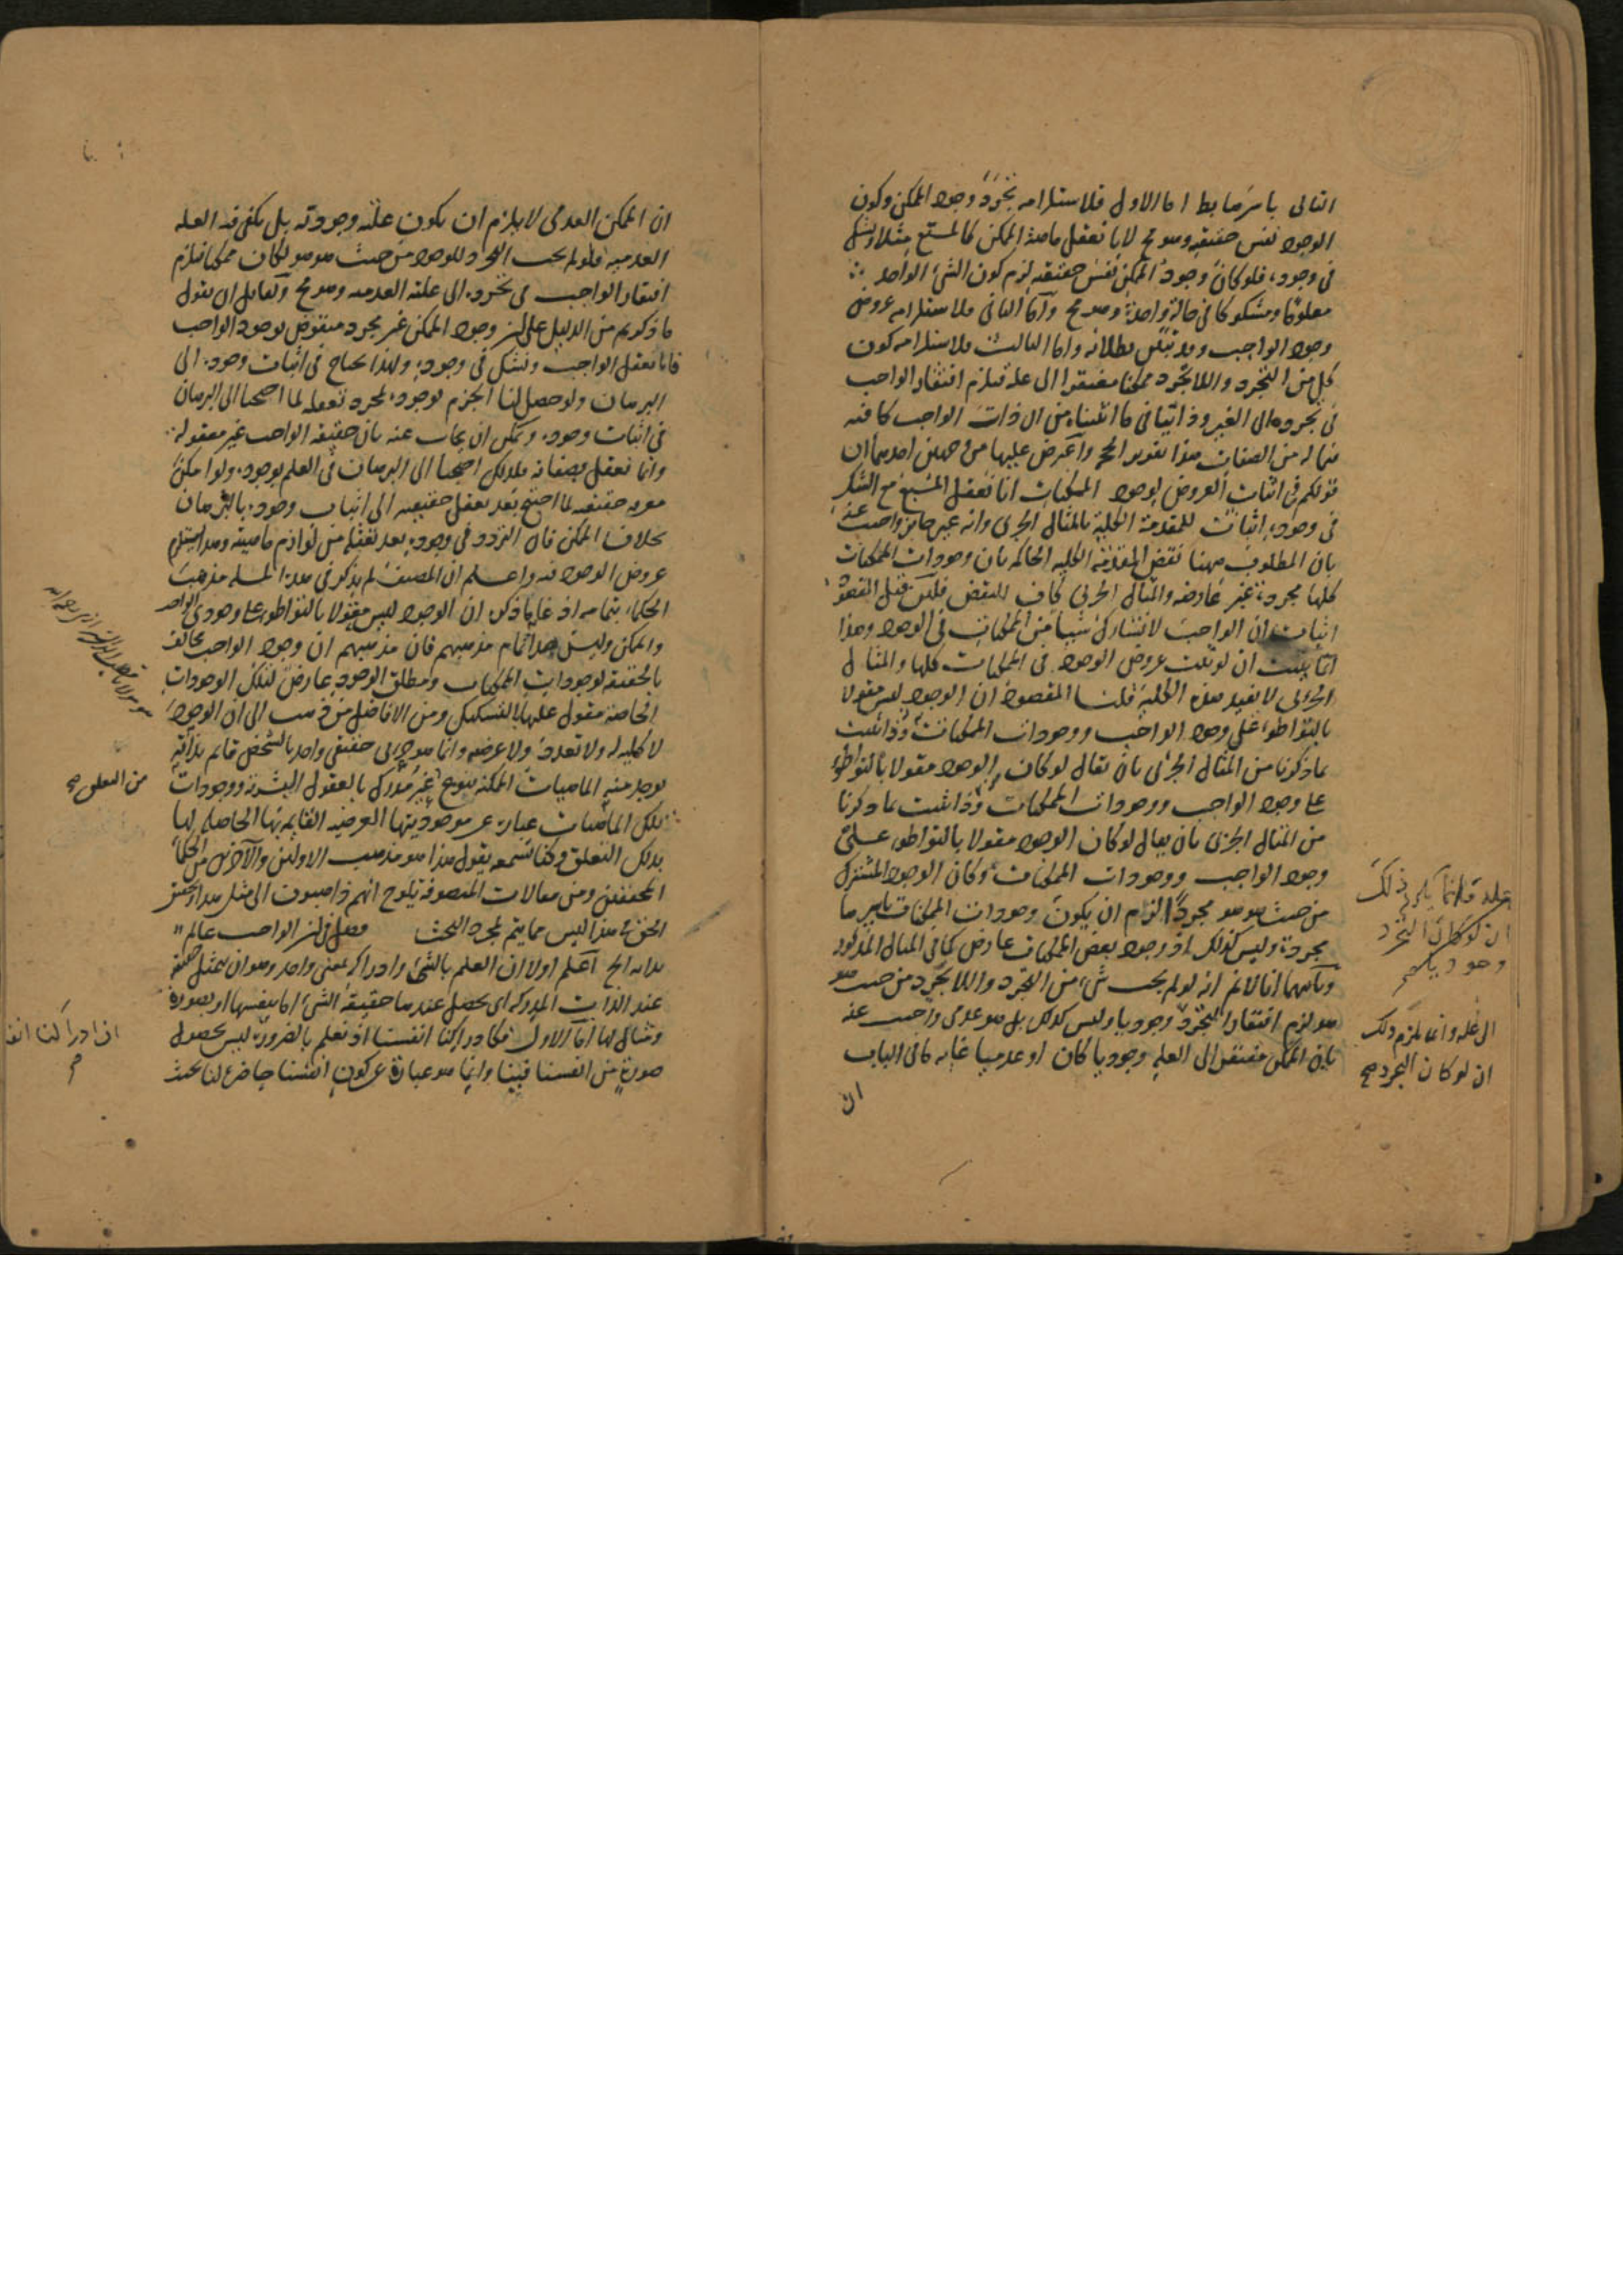 التالى باسرها بط اما الاول فلاستلزامه تجرد وجود الممكن وكون
الوجود نفس حقيقته وهو مح لانا نعقل ماهية الممكن كالمسبع مثلا ونشك
فى وجوده فلو كان وجود الممكن نفس حقيقته لزم كون الشئ الواحد
معلوما ومشكوكا فى حالة واحدة وهو مح واما الثانى فلاستلزامه عروض
وجود الواجب وقد تبين بطلانه واما الثالث فلاستلزامه كون
كل من التجرد واللاتجرد ممكنا مفتقرا الى علة فيلزم افتقار الواجب
فى تجرده الى الغير وذا ينافى ما اثبتناه من ان ذات الواجب كافيه
فيما له من الصفات هذا تقرير الحجة واعترض عليها من وجهين احدهما ان
قولكم فى اثبات العروض لوجود الممكنات انا نعقل المسبع مع الشك
فى وجوده اثبات للمقدمة الكلية بالمثال الجزئى وانه غير جائز واجيب عنه
بان المطلوب ههنا نقض المقدمة الكلية الحاكمة بان وجودات الممكنات
كلها مجردة غير عارضه والمثال الجزئى كاف للنقض فلئن قيل المقصود
اثبات ان الواجب لا يشارك شيئا من الممكنات فى الوجود وهذا
انما يثبت ان لو ثبت عروض الوجود فى الممكنات كلها والمثال
الجزئى لا يفيد هذه الكلية قلنا المقصود ان الوجود ليس مقولا
بالتواطؤ على وجود الواجب ووجودات الممكنات وذا يثبت
بما ذكرنا من المثال الجزئى بان يقال لو كان الوجود مقولا بالتواطؤ
على وجود الواجب ووجودات الممكنات وذا يثبت بما ذكرنا
من المثال الجزئى بان يقال لو كان الوجود مقولا بالتواطؤ على
وجود الواجب ووجودات الممكنات وكان الوجود المشترك
من حيث هو هو مجردا لزم ان يكون وجودات الممكنات باسرها
مجردة وليس كذلك اذ وجود بعض الممكنات عارض كما فى المثال المذكور
وثانيهما انا لانم انه لو لم يجب شئ من التجرد واللاتجرد من حيث هو
هو لزم افتقار التجرد وجوديا وليس كذلك بل هو عدمى واجيب عنه
بان الممكن مفتقر الى العلة وجوديا كان او عدميا غاية ما فى الباب
ان
علة قلنا انما يلزم ذلك
ان لو كان التجرد
وجوديا صح
الى علة وانما يلزم ذلك
ان لو كان التجرد صح
ان الممكن العدمى لا يلزم ان يكون علته وجودية بل يكفى فيه العلة
العدمية فلو لم يجب التجرد للوجود من حيث هو هو لكان ممكنا فيلزم
افتقار الواجب فى تجرده الى علته العدمية وهو مح ولقائل ان يقول
ما ذكرتم من الدليل على ان وجود الممكن غير مجرد منقوض بوجود الواجب
فانا نعقل الواجب ونشك فى وجوده ولهذا يحتاج فى اثبات وجوده الى
البرهان ولو حصل لنا الجزم بوجوده بمجرد تعقله لما احتجنا الى البرهان
فى اثبات وجوده ويمكن ان يجاب عنه بان حقيقة الواجب غير معقولة
وانما نعقل بصفاته فلذلك احتجنا الى البرهان فى العلم بوجوده ولو امكن
معرفة حقيقته لما احتيج بعد تعقل حقيقته الى اثبات وجوده بالبرهان
بخلاف الممكن فان التردد فى وجوده بعد تعقله من لوازم ماهيته وهذا يستلزم
عروض الوجود فيه واعلم ان المصنف لم يذكر فى هذه المسئلة مذهب
الحكماء بتمامه اذ غاية ما ذكره ان الوجود ليس مقولا بالتواطؤ على وجودى الواجب
والممكن وليس هذا تمام مذهبهم فان مذهبهم ان وجود الواجب مخالف
بالحقيقة لوجودات الممكنات ومطلق الوجود عارض لتلك الوجودات
الخاصة مقول عليها بالتشكيك ومن الافاضل من ذهب الى ان الوجود
لا كلية له ولا تعدد ولا عرضية وانما هو جزئى حقيقى واحد بالشخص قائم بذاته
يوجد منه الماهيات الممكنة بنوع غير مدرك بالعقول البشرية ووجودات
تلك الماهيات عبارة عن موجوديتها العرضية القائمة بها الحاصلة لها
بذلك التعلق وكنا نسمعه يقول هذا هو مذهب الاولين والآخرين من الحكماء
المحققين ومن مقالات المتصوفة يلوح انهم ذاهبون الى مثل هذا وتحقيق
الحق فى هذا ليس مما يتم بمجرد البحث فصل فى ان الواجب عالم
بذاته الخ اعلم اولا ان العلم بالشئ وادراكه بمعنى واحد وهو ان يتمثل حقيقة
عند الذات المدركة اى يحصل عندها حقيقة الشئ اما بنفسها او بصورة
ومثال لها اما الاول فكادراكنا انفسنا اذ نعلم بالضرورة ليس بحصول
صورة من انفسنا فينا وانما هو عبارة عن كون انفسنا حاضرة لنا بحيث
من التعلق صح
هو مولانا قطب الدين الرازى رحمه الله
ان ادراكنا انفسنا